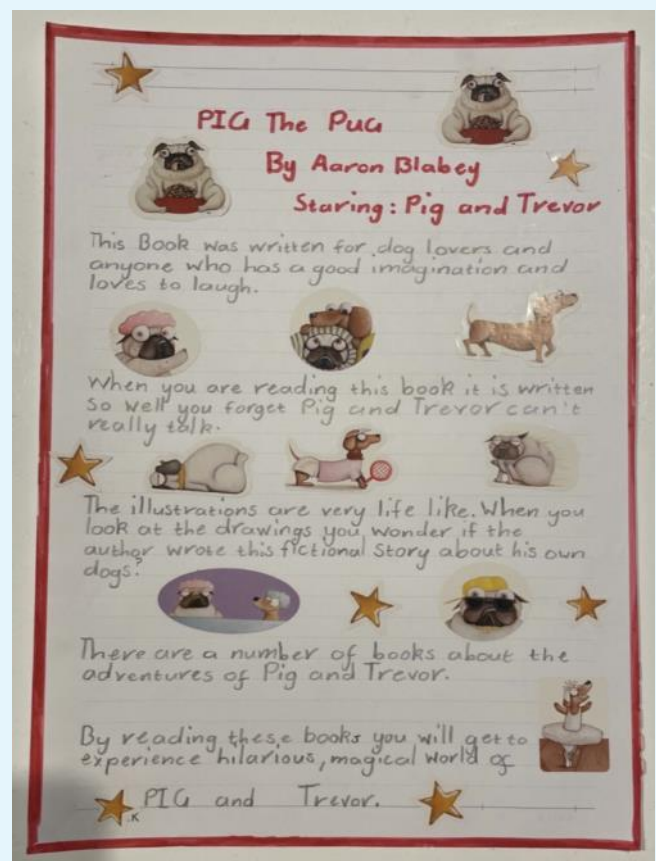 PIG The PUG
By Aaron Blabey
Staring: Pig and Trevor
This Book was written for dog lovers and
anyone who has a good imagination and
loves to laugh.
When you are reading this book it is written
so well you forget Pig and Trevor can't
really talk.
The illustrations are very life like. When you
look at the drawings you wonder if the
author wrote this fictional story about his own
dogs?
There are a number of books about the
adventures of Pig and Trevor.
By reading these books you will get to
experience hilarious, magical world of
PIG and Trevor.
.K